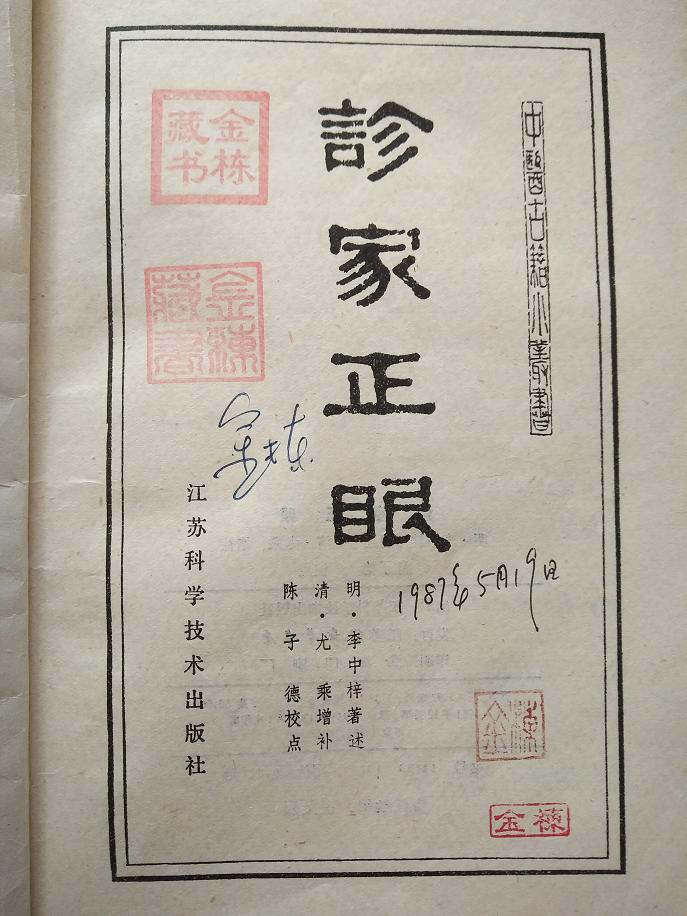 中醫古籍小叢書
診家正眼
明·李中梓著述
清·尤乘增补
陈子德校点
江苏科学技术出版社
金栋
藏书
金棟
藏書
金栋
1987年5月19日
金棟
金棟